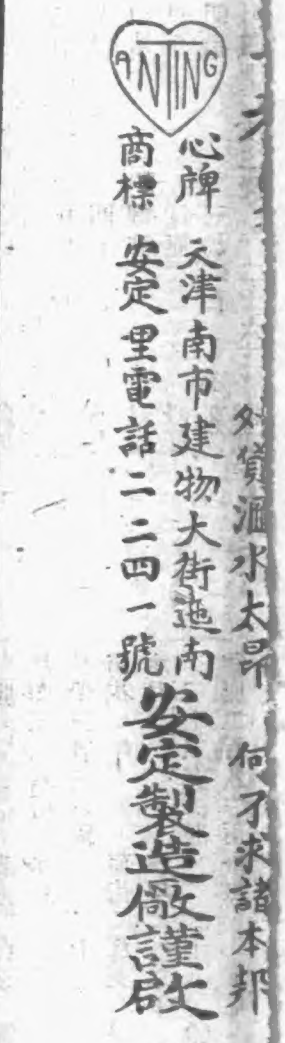 外貨滙水太昂 何不求諸本邦
ANTING
心牌
商標
天津南市建物大街迤南
安定里電話二二四一號
安定製造廠謹啟